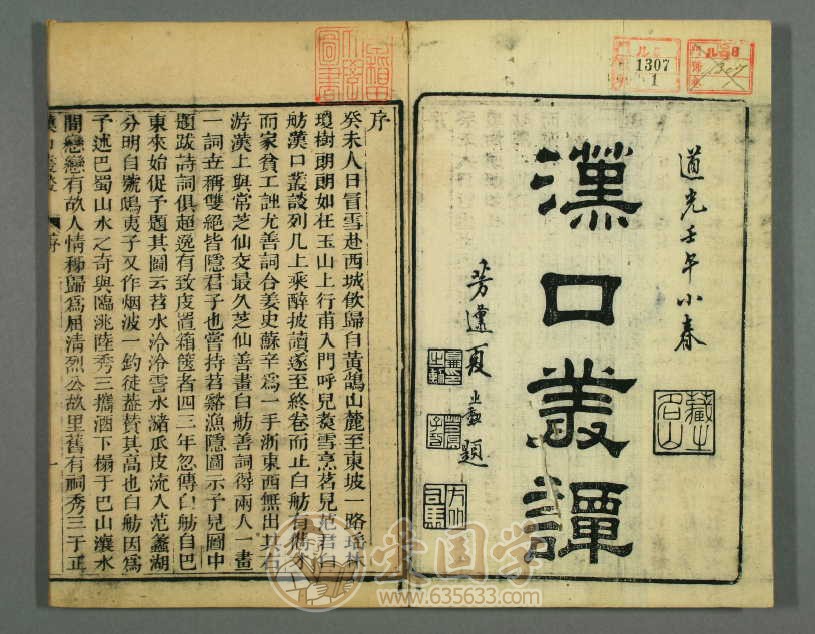 ル5
1307
1
ル5 8
1307
1
道光壬午小春
藏之名山
漢口叢譚
芳蓮夏
題
司馬
序
癸未人日冒雪赴西城飲歸自黃鵠山麓至東坡一路瑤林
瓊樹朗朗如在玉山上行甫入門呼兒煑雪烹茗見范君白
舫漢口叢談列几上乘醉披讀遂至終卷而止白舫有儁才
而家貧工詩尤善詞合姜史蘇辛爲一手浙東西無出其右
游漢上與常芝仙交最久芝仙善畫白舫善詞得兩人一畫
一詞竝稱雙絕皆隱君子也嘗持苕谿漁隱圖示予見圖中
題跋詩詞俱超逸有致庋置箱篋者四三年忽傳白舫自巴
東來始促予題其圖云苕水泠泠霅水瀦瓜皮流入范蠡湖
分明自號鴟夷子又作烟波一釣徒葢贊其高也白舫因爲
予述巴蜀山水之奇與臨洮陸秀三攜酒下榻于巴山瀼水
間戀戀有故人情秭歸爲屈清烈公故里舊有祠秀三于正
漢口叢談
序
一
爱国学
www.635633.com